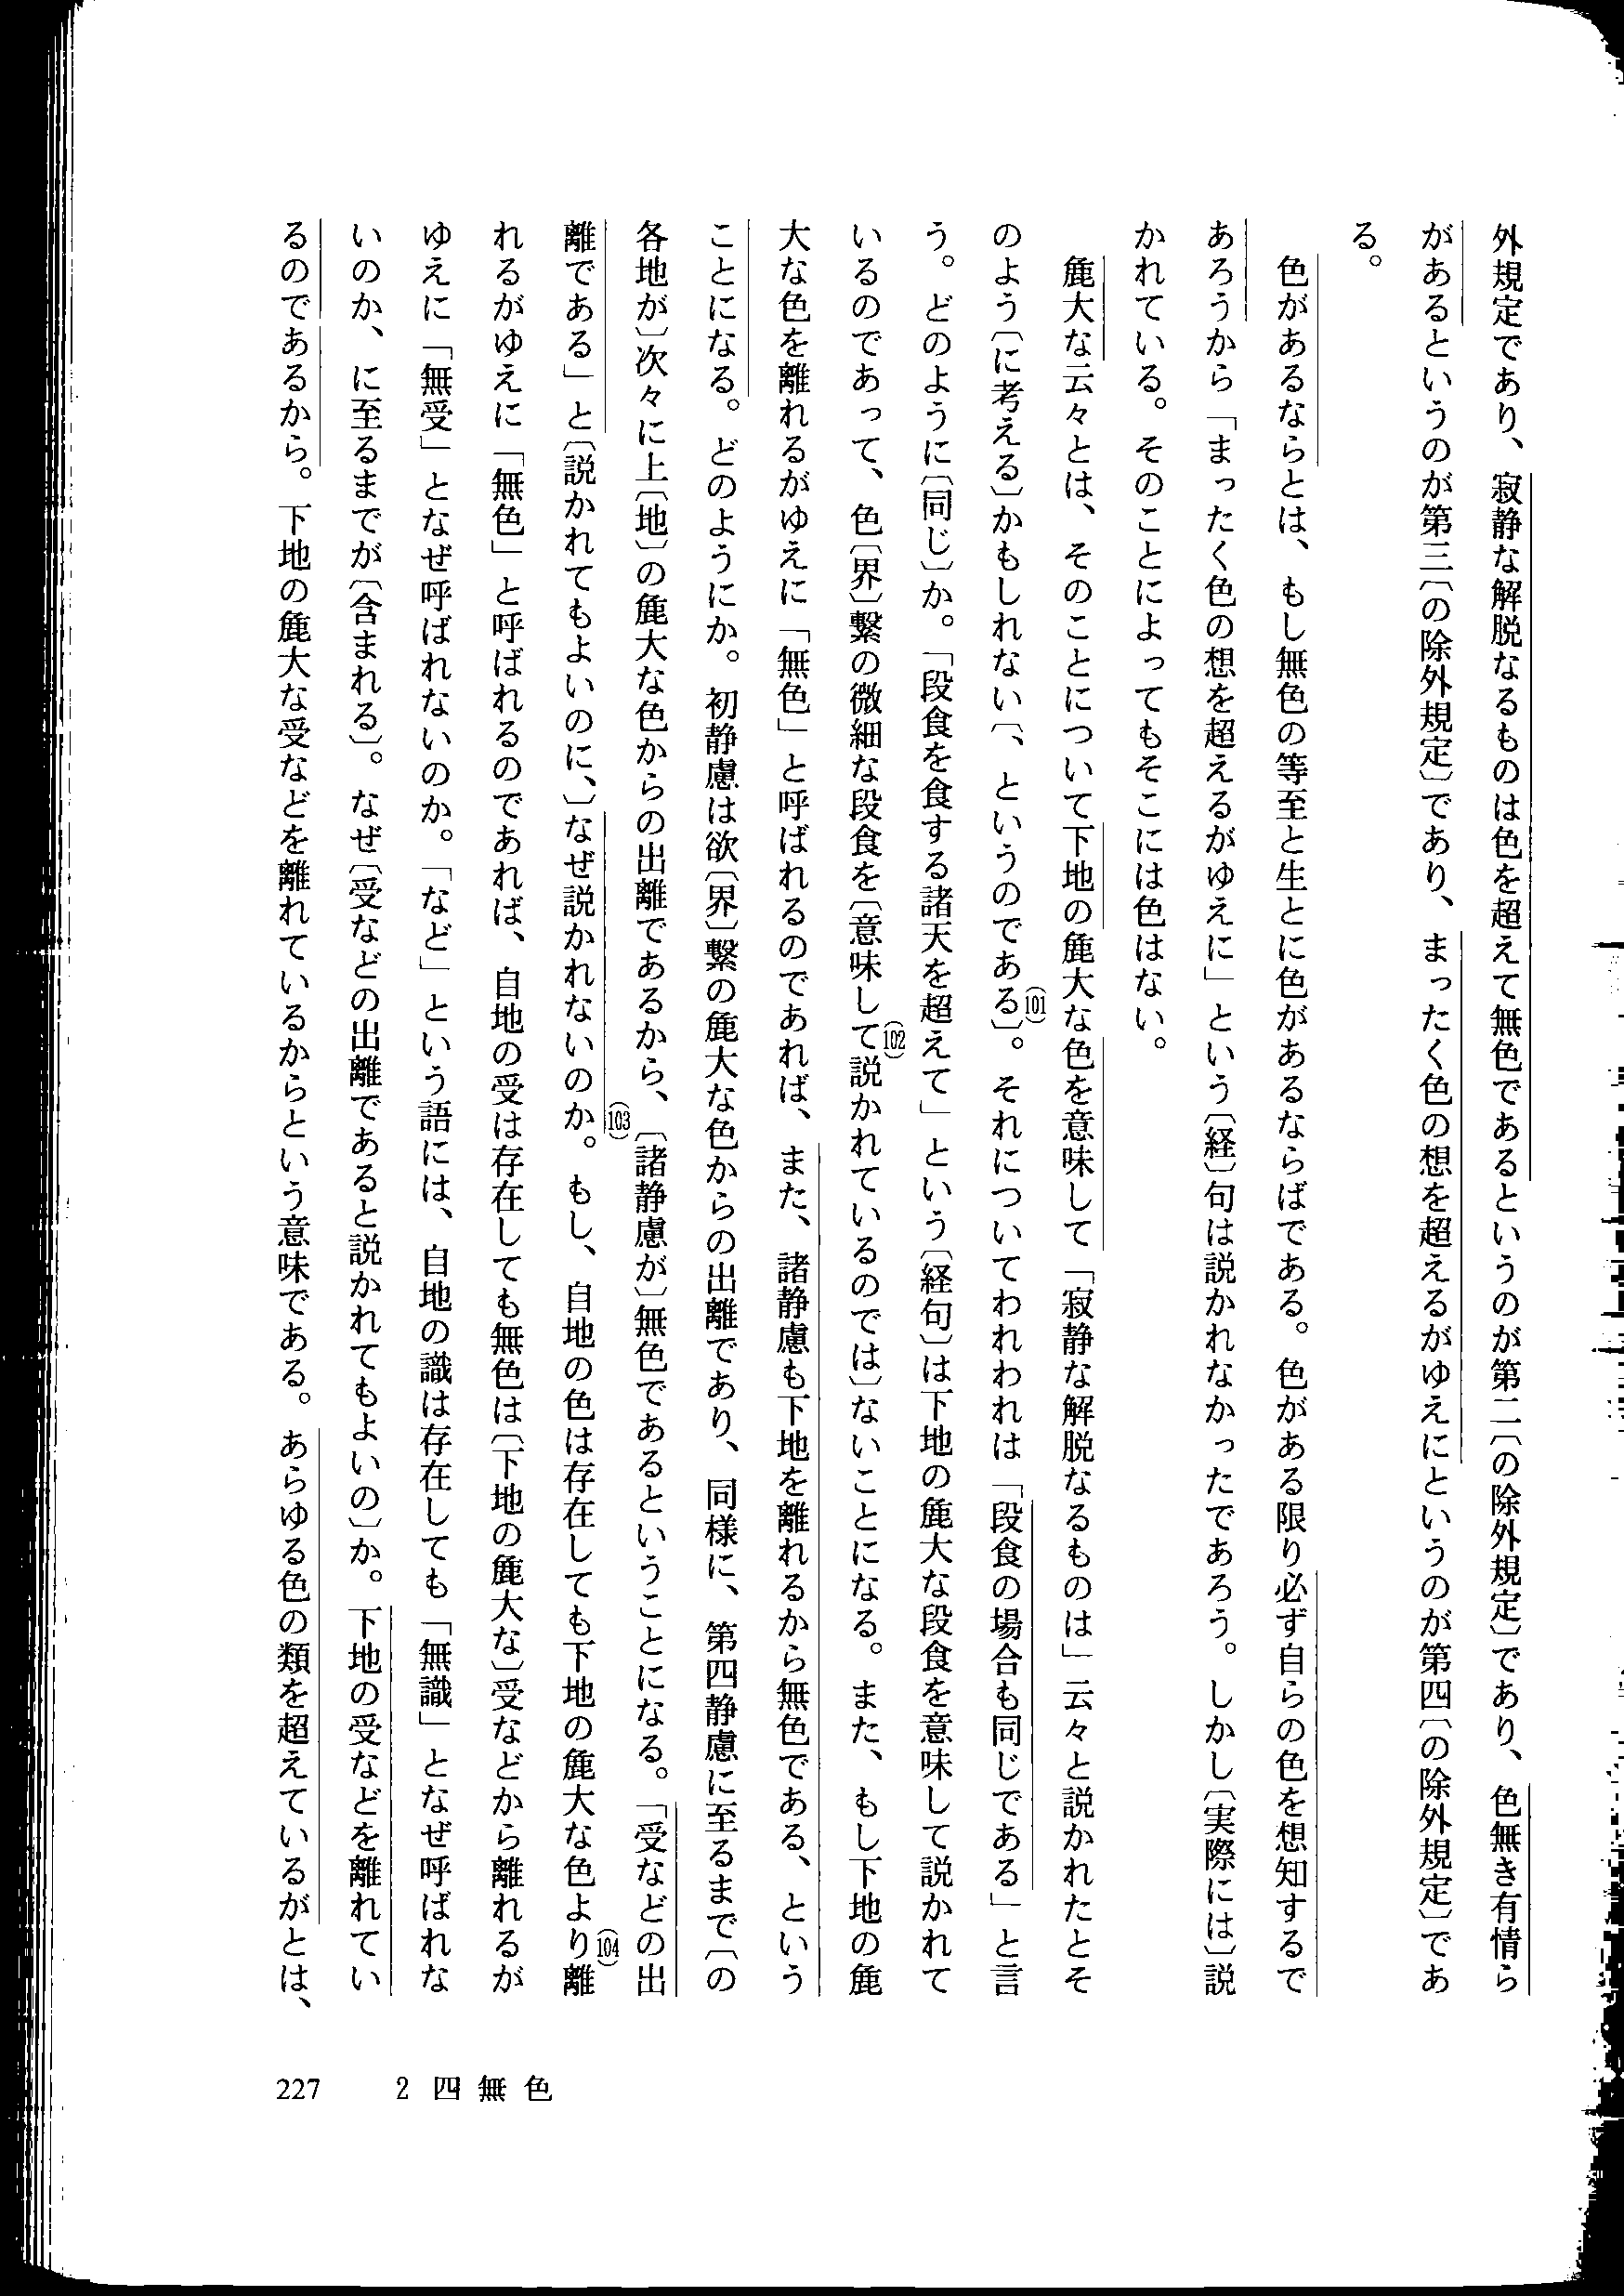 外規定であり、寂静な解脱なるものは色を超えて無色であるというのが第二〔の除外規定〕であり、色無き有情ら
があるというのが第三〔の除外規定〕であり、まったく色の想を超えるがゆえにというのが第四〔の除外規定〕であ
る。
色があるならとは、もし無色の等至と生とに色があるならばである。色がある限り必ず自らの色を想知するで
あろうから「まったく色の想を超えるがゆえに」という〔経〕句は説かれなかったであろう。しかし〔実際には〕説
かれている。そのことによってもそこには色はない。
麁大な云々とは、そのことについて下地の麁大な色を意味して「寂静な解脱なるものは」云々と説かれたとそ
のよう〔に考える〕かもしれない〔、というのである〕(101)。それについてわれわれは「段食の場合も同じである」と言
う。どのように〔同じ〕か。「段食を食する諸天を超えて」という〔経句〕は下地の麁大な段食を意味して説かれて
いるのであって、色〔界〕繋の微細な段食を〔意味して(102)説かれているのでは〕ないことになる。また、もし下地の麁
大な色を離れるがゆえに「無色」と呼ばれるのであれば、また、諸静慮も下地を離れるから無色である、という
ことになる。どのようにか。初静慮は欲〔界〕繋の麁大な色からの出離であり、同様に、第四静慮に至るまで〔の
各地が〕次々に上〔地〕の麁大な色からの出離であるから、〔諸静慮が〕無色であるということになる。「受などの出
離である」と〔説かれてもよいのに、〕なぜ説かれないのか(103)。もし、自地の色は存在しても下地の麁大な色より(104)離
れるがゆえに「無色」と呼ばれるのであれば、自地の受は存在しても無色は〔下地の麁大な〕受などから離れるが
ゆえに「無受」となぜ呼ばれないのか。「など」という語には、自地の識は存在しても「無識」となぜ呼ばれな
いのか、に至るまでが〔含まれる〕。なぜ〔受などの出離であると説かれてもよいの〕か。下地の受などを離れてい
るのであるから。下地の麁大な受などを離れているからという意味である。あらゆる色の類を超えているがとは、
227 2 四無色